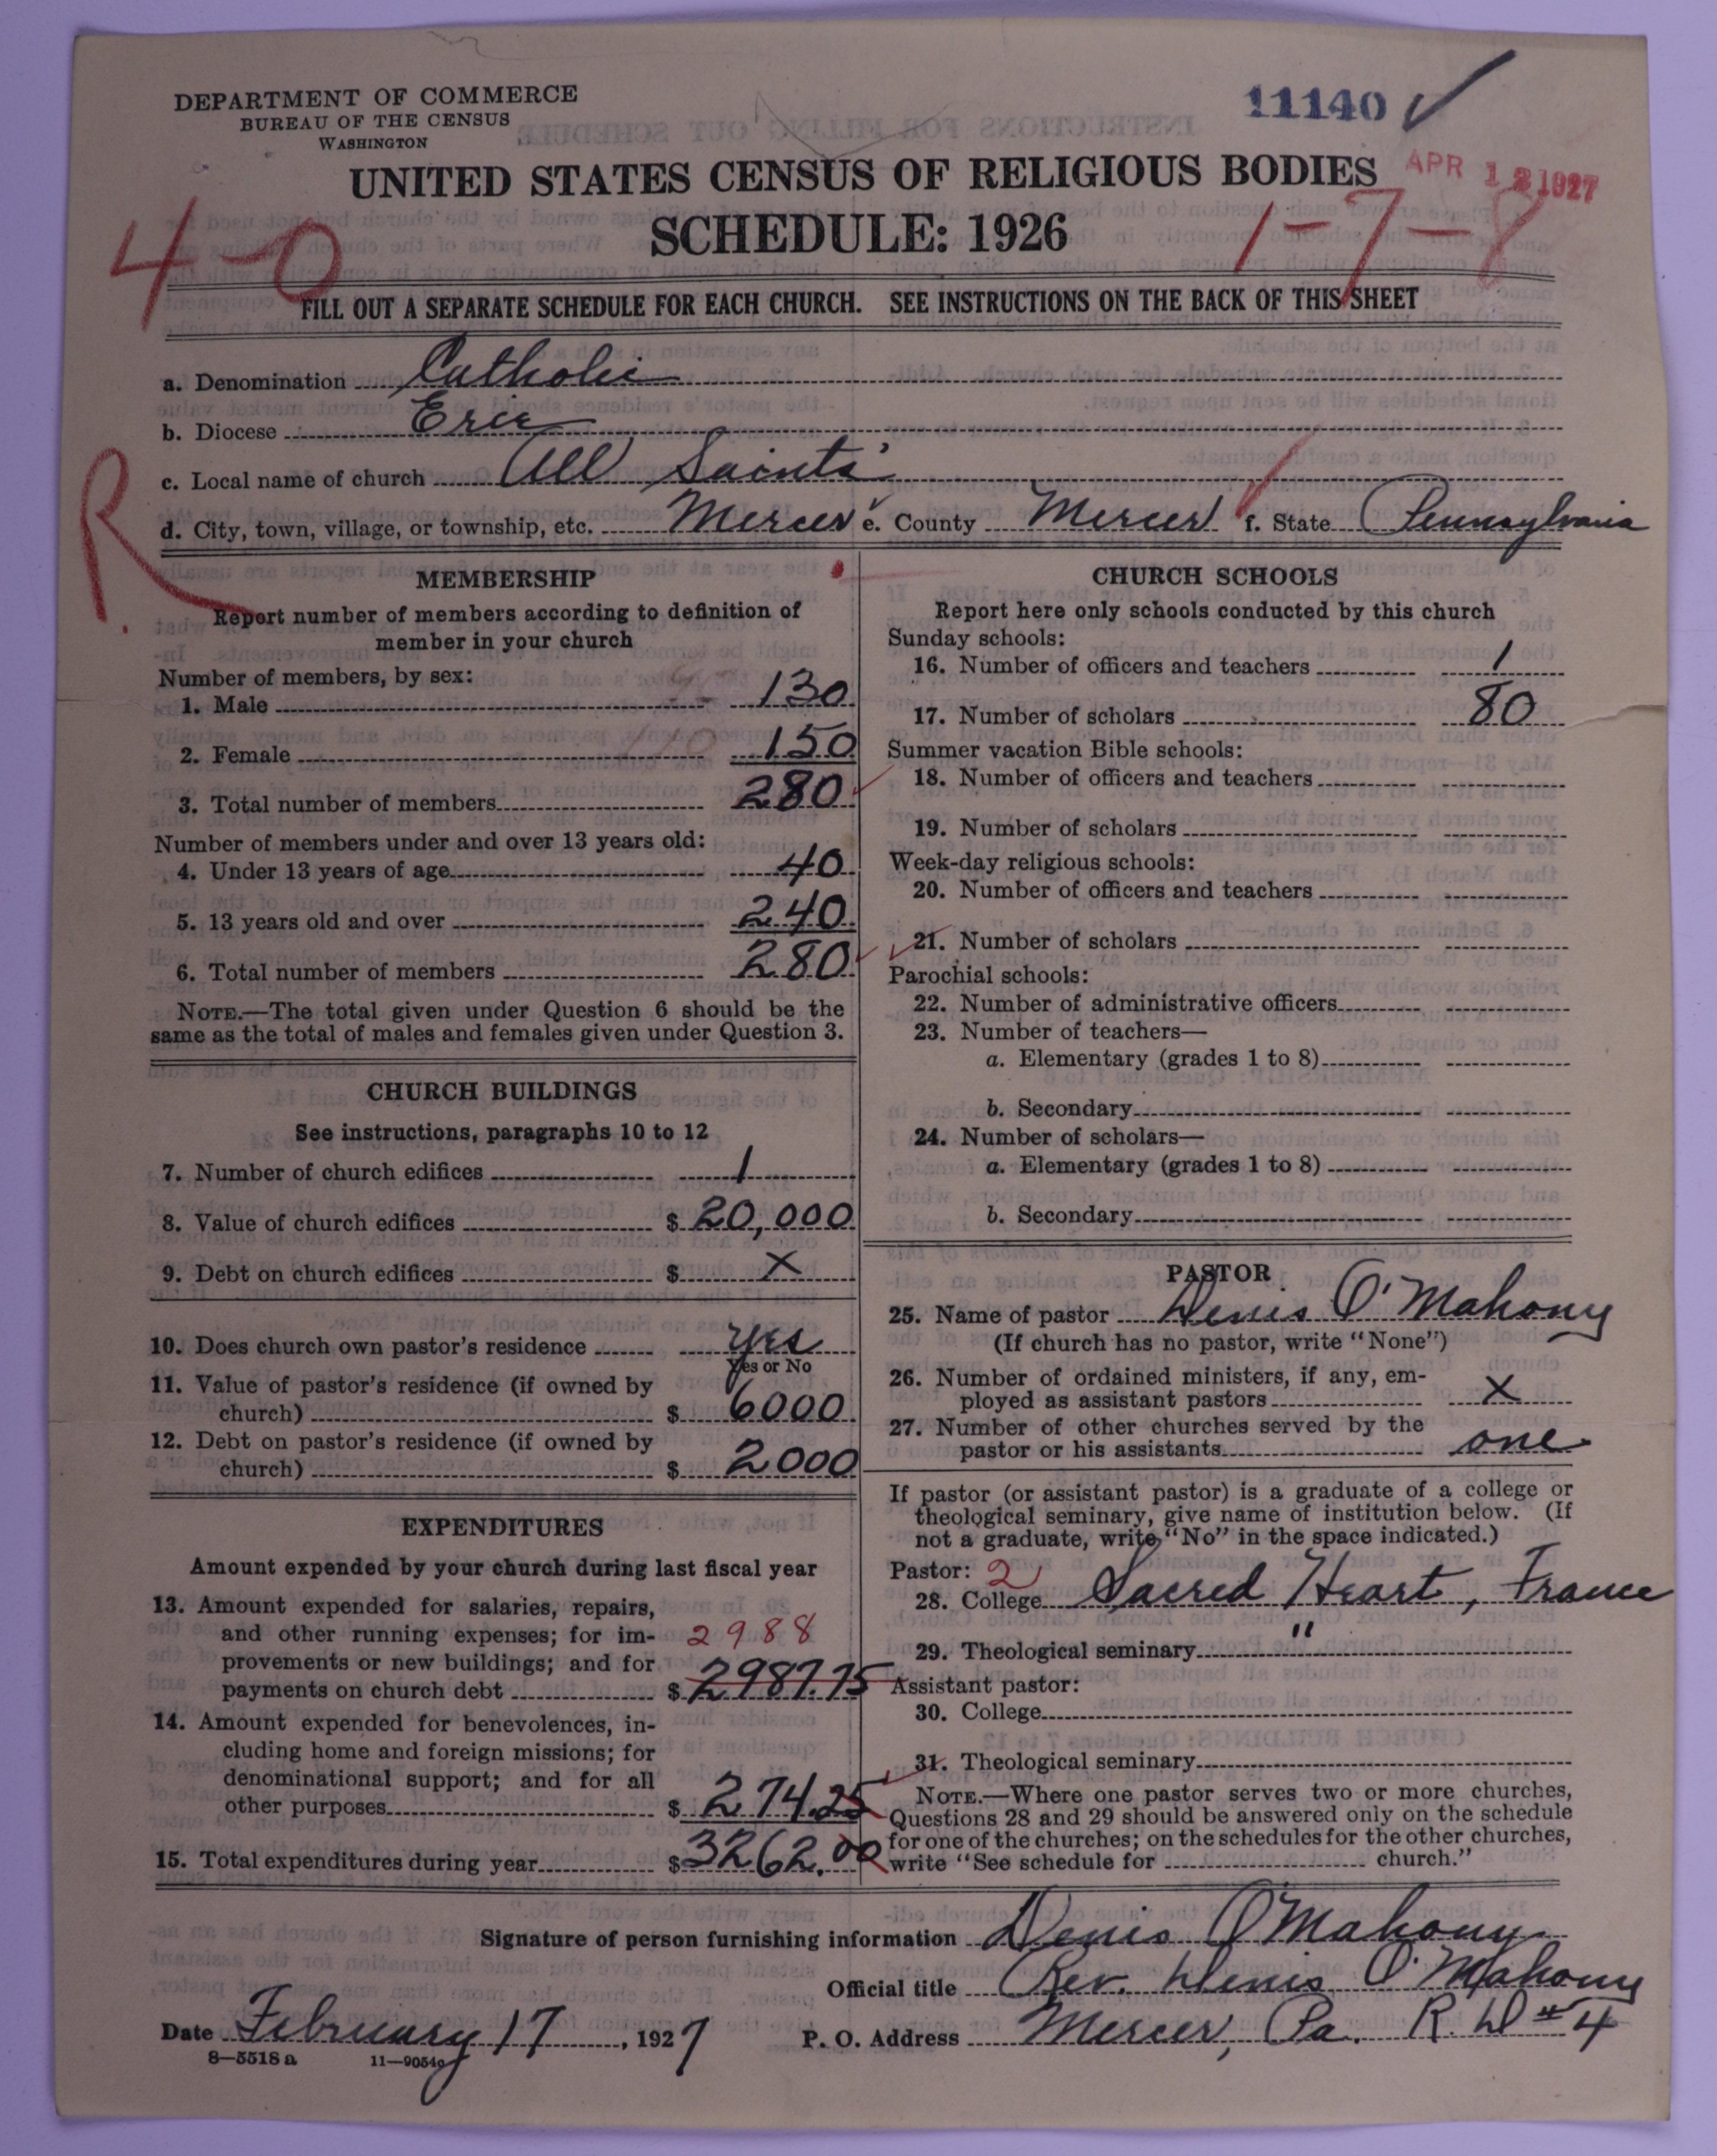 DEPARTMENT OF COMMERCE
BUREAU OF THE CENSUS
WASHINGTON
11140 ✓
UNITED STATES CENSUS OF RELIGIOUS BODIES
APR 12 1927
SCHEDULE: 1926
4-0
1-7-8
FILL OUT A SEPARATE SCHEDULE FOR EACH CHURCH. SEE INSTRUCTIONS ON THE BACK OF THIS SHEET
a. Denomination Catholic
b. Diocese Erie
c. Local name of church All Saints'
d. City, town, village, or township, etc. Mercer e. County Mercer f. State Pennsylvania
R.
MEMBERSHIP
Report number of members according to definition of
member in your church
Number of members, by sex:
1. Male 130
2. Female 150
3. Total number of members 280
Number of members under and over 13 years old:
4. Under 13 years of age 40
5. 13 years old and over 240
6. Total number of members 280
NOTE.—The total given under Question 6 should be the
same as the total of males and females given under Question 3.
CHURCH BUILDINGS
See instructions, paragraphs 10 to 12
7. Number of church edifices 1
8. Value of church edifices $ 20,000
9. Debt on church edifices $ X
10. Does church own pastor's residence yes
Yes or No
11. Value of pastor's residence (if owned by
church) $ 6000
12. Debt on pastor's residence (if owned by
church) $ 2000
EXPENDITURES
Amount expended by your church during last fiscal year
13. Amount expended for salaries, repairs,
and other running expenses; for im- 2988
provements or new buildings; and for
payments on church debt $ 2987.75
14. Amount expended for benevolences, in-
cluding home and foreign missions; for
denominational support; and for all
other purposes $ 274.25
15. Total expenditures during year $ 3262.00
CHURCH SCHOOLS
Report here only schools conducted by this church
Sunday schools:
16. Number of officers and teachers 1
17. Number of scholars 80
Summer vacation Bible schools:
18. Number of officers and teachers
19. Number of scholars
Week-day religious schools:
20. Number of officers and teachers
21. Number of scholars
Parochial schools:
22. Number of administrative officers
23. Number of teachers—
a. Elementary (grades 1 to 8)
b. Secondary
24. Number of scholars—
a. Elementary (grades 1 to 8)
b. Secondary
PASTOR
25. Name of pastor Denis O'Mahony
(If church has no pastor, write "None")
26. Number of ordained ministers, if any, em-
ployed as assistant pastors X
27. Number of other churches served by the
pastor or his assistants one
If pastor (or assistant pastor) is a graduate of a college or
theological seminary, give name of institution below. (If
not a graduate, write "No" in the space indicated.)
Pastor: 2
28. College Sacred Heart, France
29. Theological seminary "
Assistant pastor:
30. College
31. Theological seminary
NOTE.—Where one pastor serves two or more churches,
Questions 28 and 29 should be answered only on the schedule
for one of the churches; on the schedules for the other churches,
write "See schedule for church."
Signature of person furnishing information Denis O'Mahony
Official title Rev. Denis O'Mahony
Date February 17, 1927 P. O. Address Mercer, Pa. R. D #4
8—5518 a 11—9054a